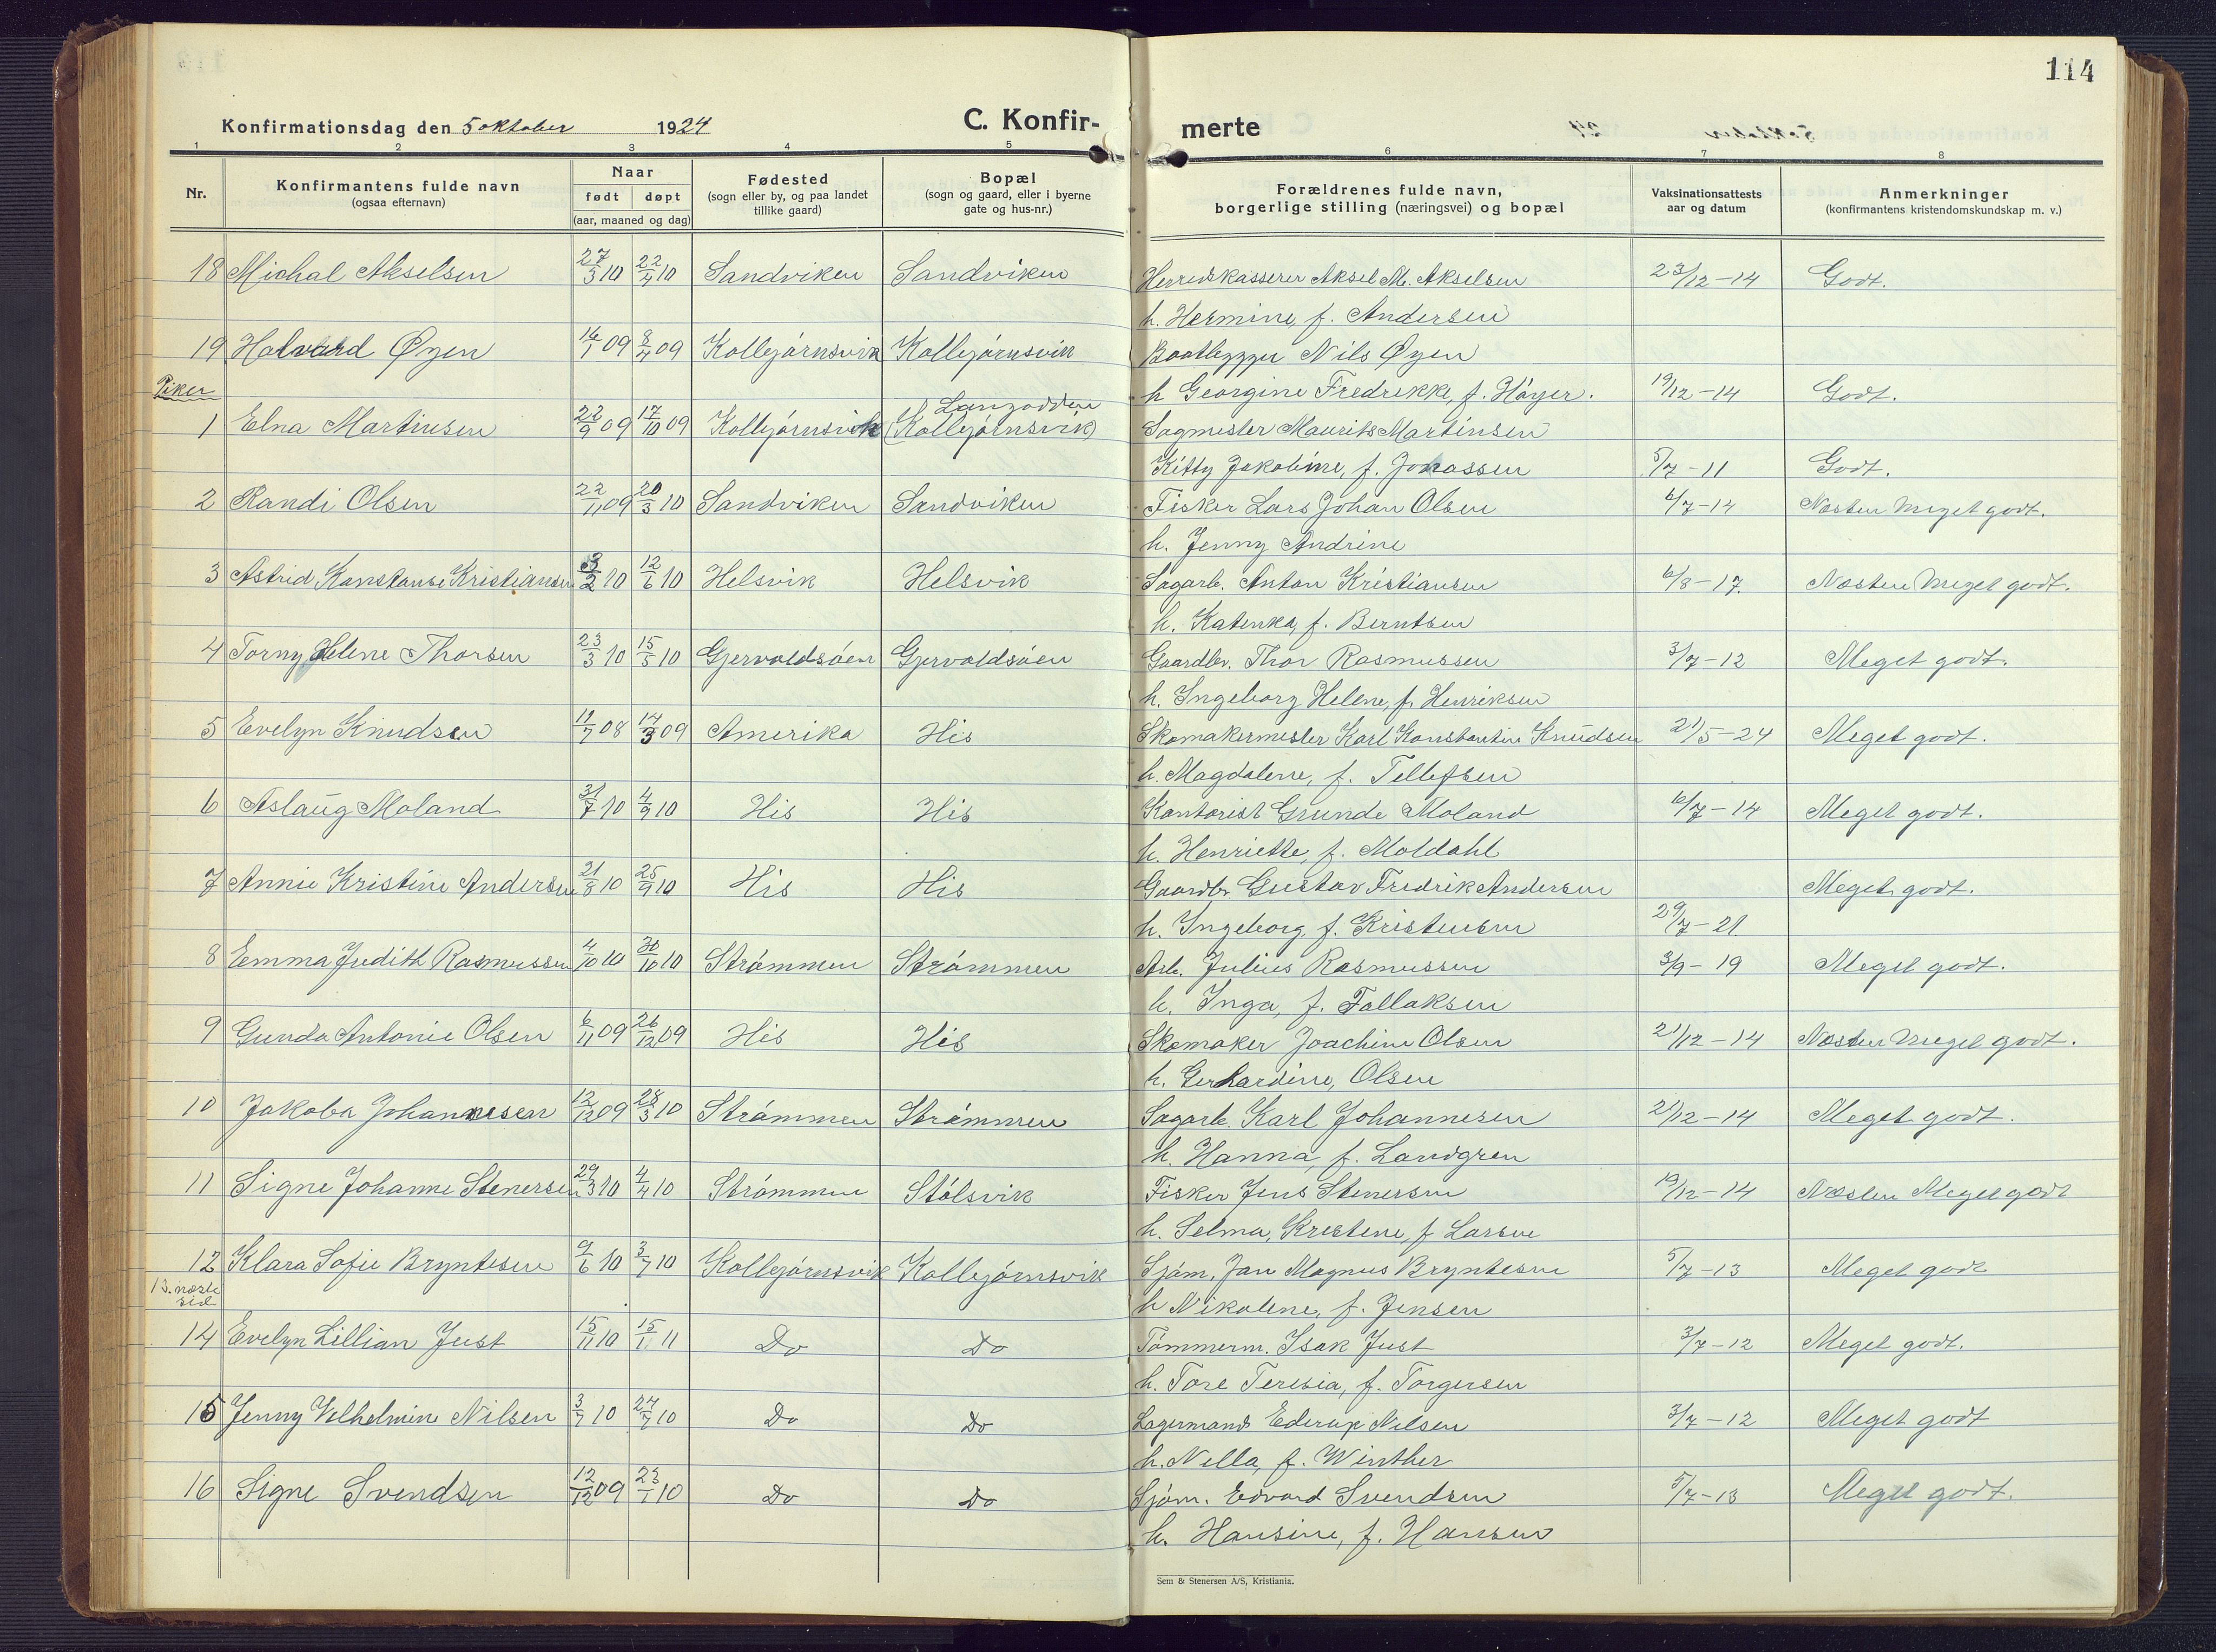 114
Konfirmationsdag den 5 oktober 1924
C. Konfirmerte
1 2 3 4 5 6 7 8
Nr. | Konfirmantens fulde navn (ogsaa efternavn) | Naar født døpt (aar, maaned og dag) | Fødested (sogn eller by, og paa landet tillike gaard) | Bopæl (sogn og gaard, eller i byerne gate og hus-nr.) | Forældrenes fulde navn, borgerlige stilling (næringsvei) og bopæl | Vaksinationsattests aar og datum | Anmerkninger (konfirmantens kristendomskundskap m. v.)
18 Michal Akselsen 27/3 10 22/4 10 Sandviken Sandviken Herredskasserer Aksel M. Akselsen 23/12-14 Godt.
h. Hermine, f. Andersen
19 Halvard Øyen 14/1 09 8/4 09 Kolbjørnsvik Kolbjørnsvik Baatbygger Nils Øyen
Piker
h Georgine Fredrikke, f. Høyer. 19/12-14 Godt.
1 Elna Martinsen 22/9 09 17/10 09 Kolbjørnsvik Langodden (Kolbjørnsvik) Sagmester Maurits Martinsen
Kitty Jakobine, f. Jonassen 5/7-11 Godt.
2 Randi Olsen 22/11 09 20/3 10 Sandviken Sandviken Fisker Lars Johan Olsen 6/7-14 Næsten meget godt.
h. Jenny Andrine
3 Astrid Konstanse Kristiansen 3/2 10 12/6 10 Helsvik Helsvik Sagarb. Anton Kristiansen 6/8-17. Næsten meget godt.
h. Katinka, f. Berntsen
4 Torny Helene Thorsen 23/3 10 15/5 10 Gjervoldsøen Gjervoldsøen Gaardbr. Thor Rasmussen 3/7-12 Meget godt.
h. Ingeborg Helene, f. Henriksen
5 Evelyn Knudsen 11/7 08 14/3 09 Amerika His Skomakermester Karl Konstantin Knudsen 21/5-24 Meget godt.
h. Magdalene, f. Tellefsen
6 Aslaug Moland 31/7 10 4/9 10 His His Kontorist Grunde Moland 6/7-14 Meget godt.
h. Henriette, f. Moldahl
7 Annie Kristine Andersen 21/8 10 25/9 10 His His Gaardbr. Gustav Fredrik Andersen Meget godt.
h. Ingeborg, f. Kristensen 29/7-21
8 Emma Judith Rasmussen 4/10 10 30/10 10 Strømmen Strømmen Arb. Julius Rasmussen 3/9-19 Meget godt.
h. Inga, f. Fallaksen
9 Gunda Antonie Olsen 6/11 09 26/12 09 His His Skomaker Joachim Olsen 21/12-14 Næsten meget godt.
h. Gerhardine, Olsen
10 Jakoba Johannesen 12/12 09 28/3 10 Strømmen Strømmen Sagarb. Karl Johannesen 21/12-14 Meget godt.
h. Hanna, f. Landgren
11 Signe Johanne Stenersen 29/3 10 4/4 10 Strømmen Stølsvik Fisker Jens Stenersen 19/12-14 Næsten Meget godt
h. Selma, Kristene, f Larsen
12 Klara Sofie Bryntesen 9/6 10 3/7 10 Kolbjørnsvik Kolbjørnsvik Sjøm. Jan Magnus Bryntesen 5/7-13 Meget godt
13. næste side
h Nikoline, f. Jensen
14 Evelyn Lillian Just 15/11 10 15/1 11 Do Do Tømmerm. Isak Just 3/7-12 Meget godt.
h. Tore Teresia, f. Torgersen
15 Jenny Vilhelmine Nilsen 3/7 10 24/7 10 Do Do Lagermand Nilsen 3/7-12 Meget godt
h. Nella, f. Winther
16 Signe Svendsen 12/12 09 23/1 10 Do Do Sjøm. Edvard Svendsen 5/7-13 Meget godt.
h. Hansine, f. Hansen
Sem & Stenersen A/S, Kristiania.